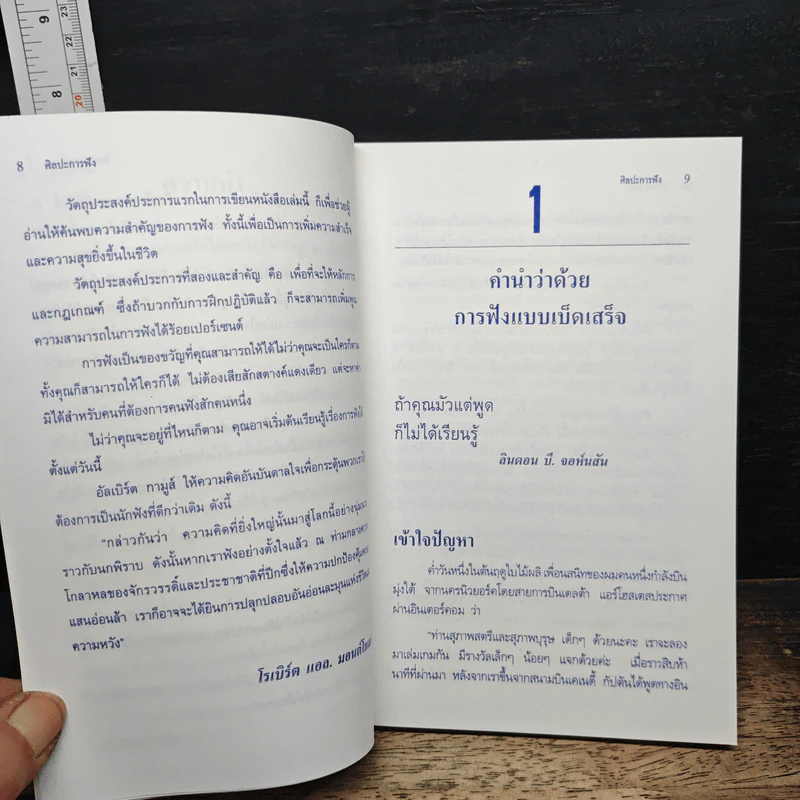 8 ศิลปะการฟัง
วัตถุประสงค์ประการแรกในการเขียนหนังสือเล่มนี้ ก็เพื่อช่วยผู้
อ่านให้ค้นพบความสำคัญของการฟัง ทั้งนี้เพื่อเป็นการเพิ่มความสำเร็จ
และความสุขยิ่งขึ้นในชีวิต
วัตถุประสงค์ประการที่สองและสำคัญ คือ เพื่อที่จะให้หลักการ
และกฎเกณฑ์ ซึ่งถ้าบวกกับการฝึกปฏิบัติแล้ว ก็จะสามารถเพิ่มพูน
ความสามารถในการฟังได้ร้อยเปอร์เซนต์
การฟังเป็นของขวัญที่คุณสามารถให้ได้ไม่ว่าคุณจะเป็นใครก็ตาม
ทั้งคุณก็สามารถให้ใครก็ได้ ไม่ต้องเสียสักสตางค์แดงเดียว แต่จะหาค่า
มิได้สำหรับคนที่ต้องการคนฟังสักคนหนึ่ง
ไม่ว่าคุณจะอยู่ที่ไหนก็ตาม คุณอาจเริ่มต้นเรียนรู้เรื่องการฟังได้
ตั้งแต่วันนี้
อัลเบิร์ต กามูส์ ให้ความคิดอันบันดาลใจเพื่อกระตุ้นพวกเราให้
ต้องการเป็นนักฟังที่ดีกว่าเดิม ดังนี้
“กล่าวกันว่า ความคิดที่ยิ่งใหญ่นั้นมาสู่โลกนี้อย่างนุ่มนวล
ราวกับนกพิราบ ดังนั้นหากเราฟังอย่างตั้งใจแล้ว ณ ท่ามกลางความ
โกลาหลของจักรวรรดิ์และประชาชาติที่ปีกซึ่งให้ความปกป้องคุ้มครอง
แสนอ่อนล้า เราก็อาจจะได้ยินการปลุกปลอบอันอ่อนละมุนแห่งชีวิตและ
ความหวัง”
โรเบิร์ต แอล. มอนต์โกเมอรี่
ศิลปะการฟัง 9
1
คำนำว่าด้วย
การฟังแบบเบ็ดเสร็จ
ถ้าคุณมัวแต่พูด
ก็ไม่ได้เรียนรู้
ลินดอน บี. จอห์นสัน
เข้าใจปัญหา
ค่ำวันหนึ่งในต้นฤดูใบไม้ผลิ เพื่อนสนิทของผมคนหนึ่งกำลังบิน
มุ่งใต้ จากนครนิวยอร์คโดยสายการบินเดลต้า แอร์โฮสเตสประกาศ
ผ่านอินเตอร์คอม ว่า
“ท่านสุภาพสตรีและสุภาพบุรุษ เด็กๆ ด้วยนะคะ เราจะลอง
มาเล่มเกมกัน มีรางวัลเล็กๆ น้อยๆ แจกด้วยค่ะ เมื่อราวสิบห้า
นาทีที่ผ่านมา หลังจากเราขึ้นจากสนามบินเคเนดี้ กัปตันได้พูดทางอิน
23
22
21
20
9
8